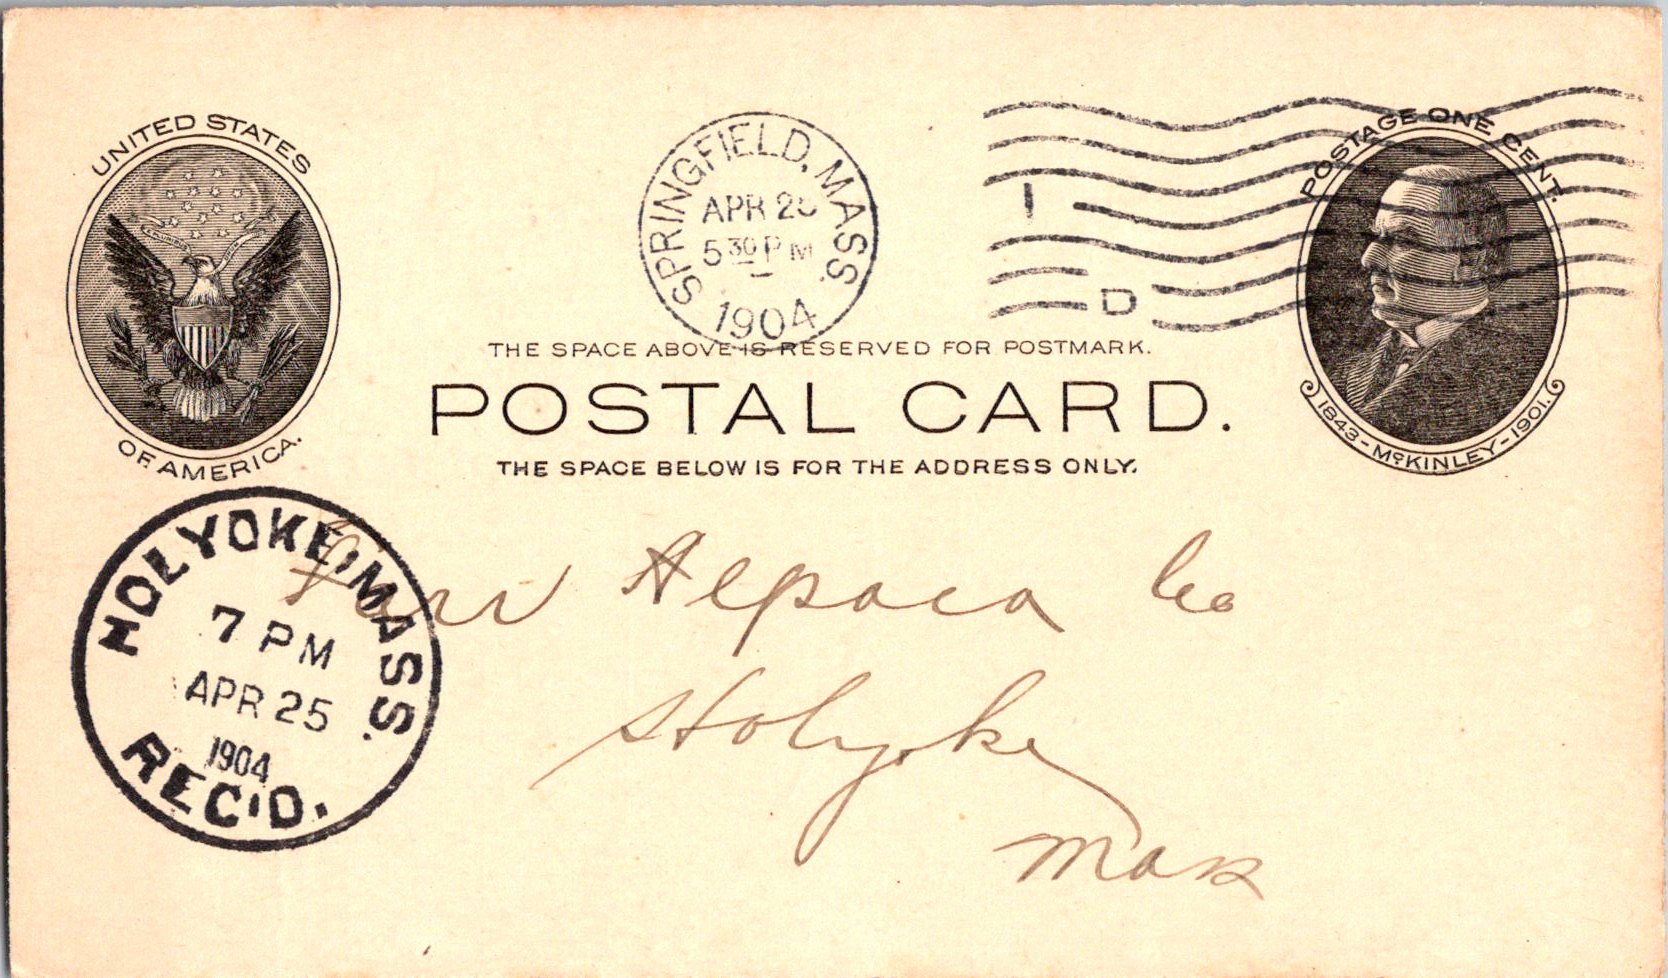 UNITED STATES
OF AMERICA.
SPRINGFIELD, MASS.
APR 25
5 30 PM
1904
I
D
POSTAGE ONE CENT.
1843-McKINLEY-1901.
THE SPACE ABOVE IS RESERVED FOR POSTMARK.
POSTAL CARD.
THE SPACE BELOW IS FOR THE ADDRESS ONLY.
HOLYOKE, MASS.
7 PM
APR 25
1904
REC'D.
Alpaca Co
Holyoke
Mass